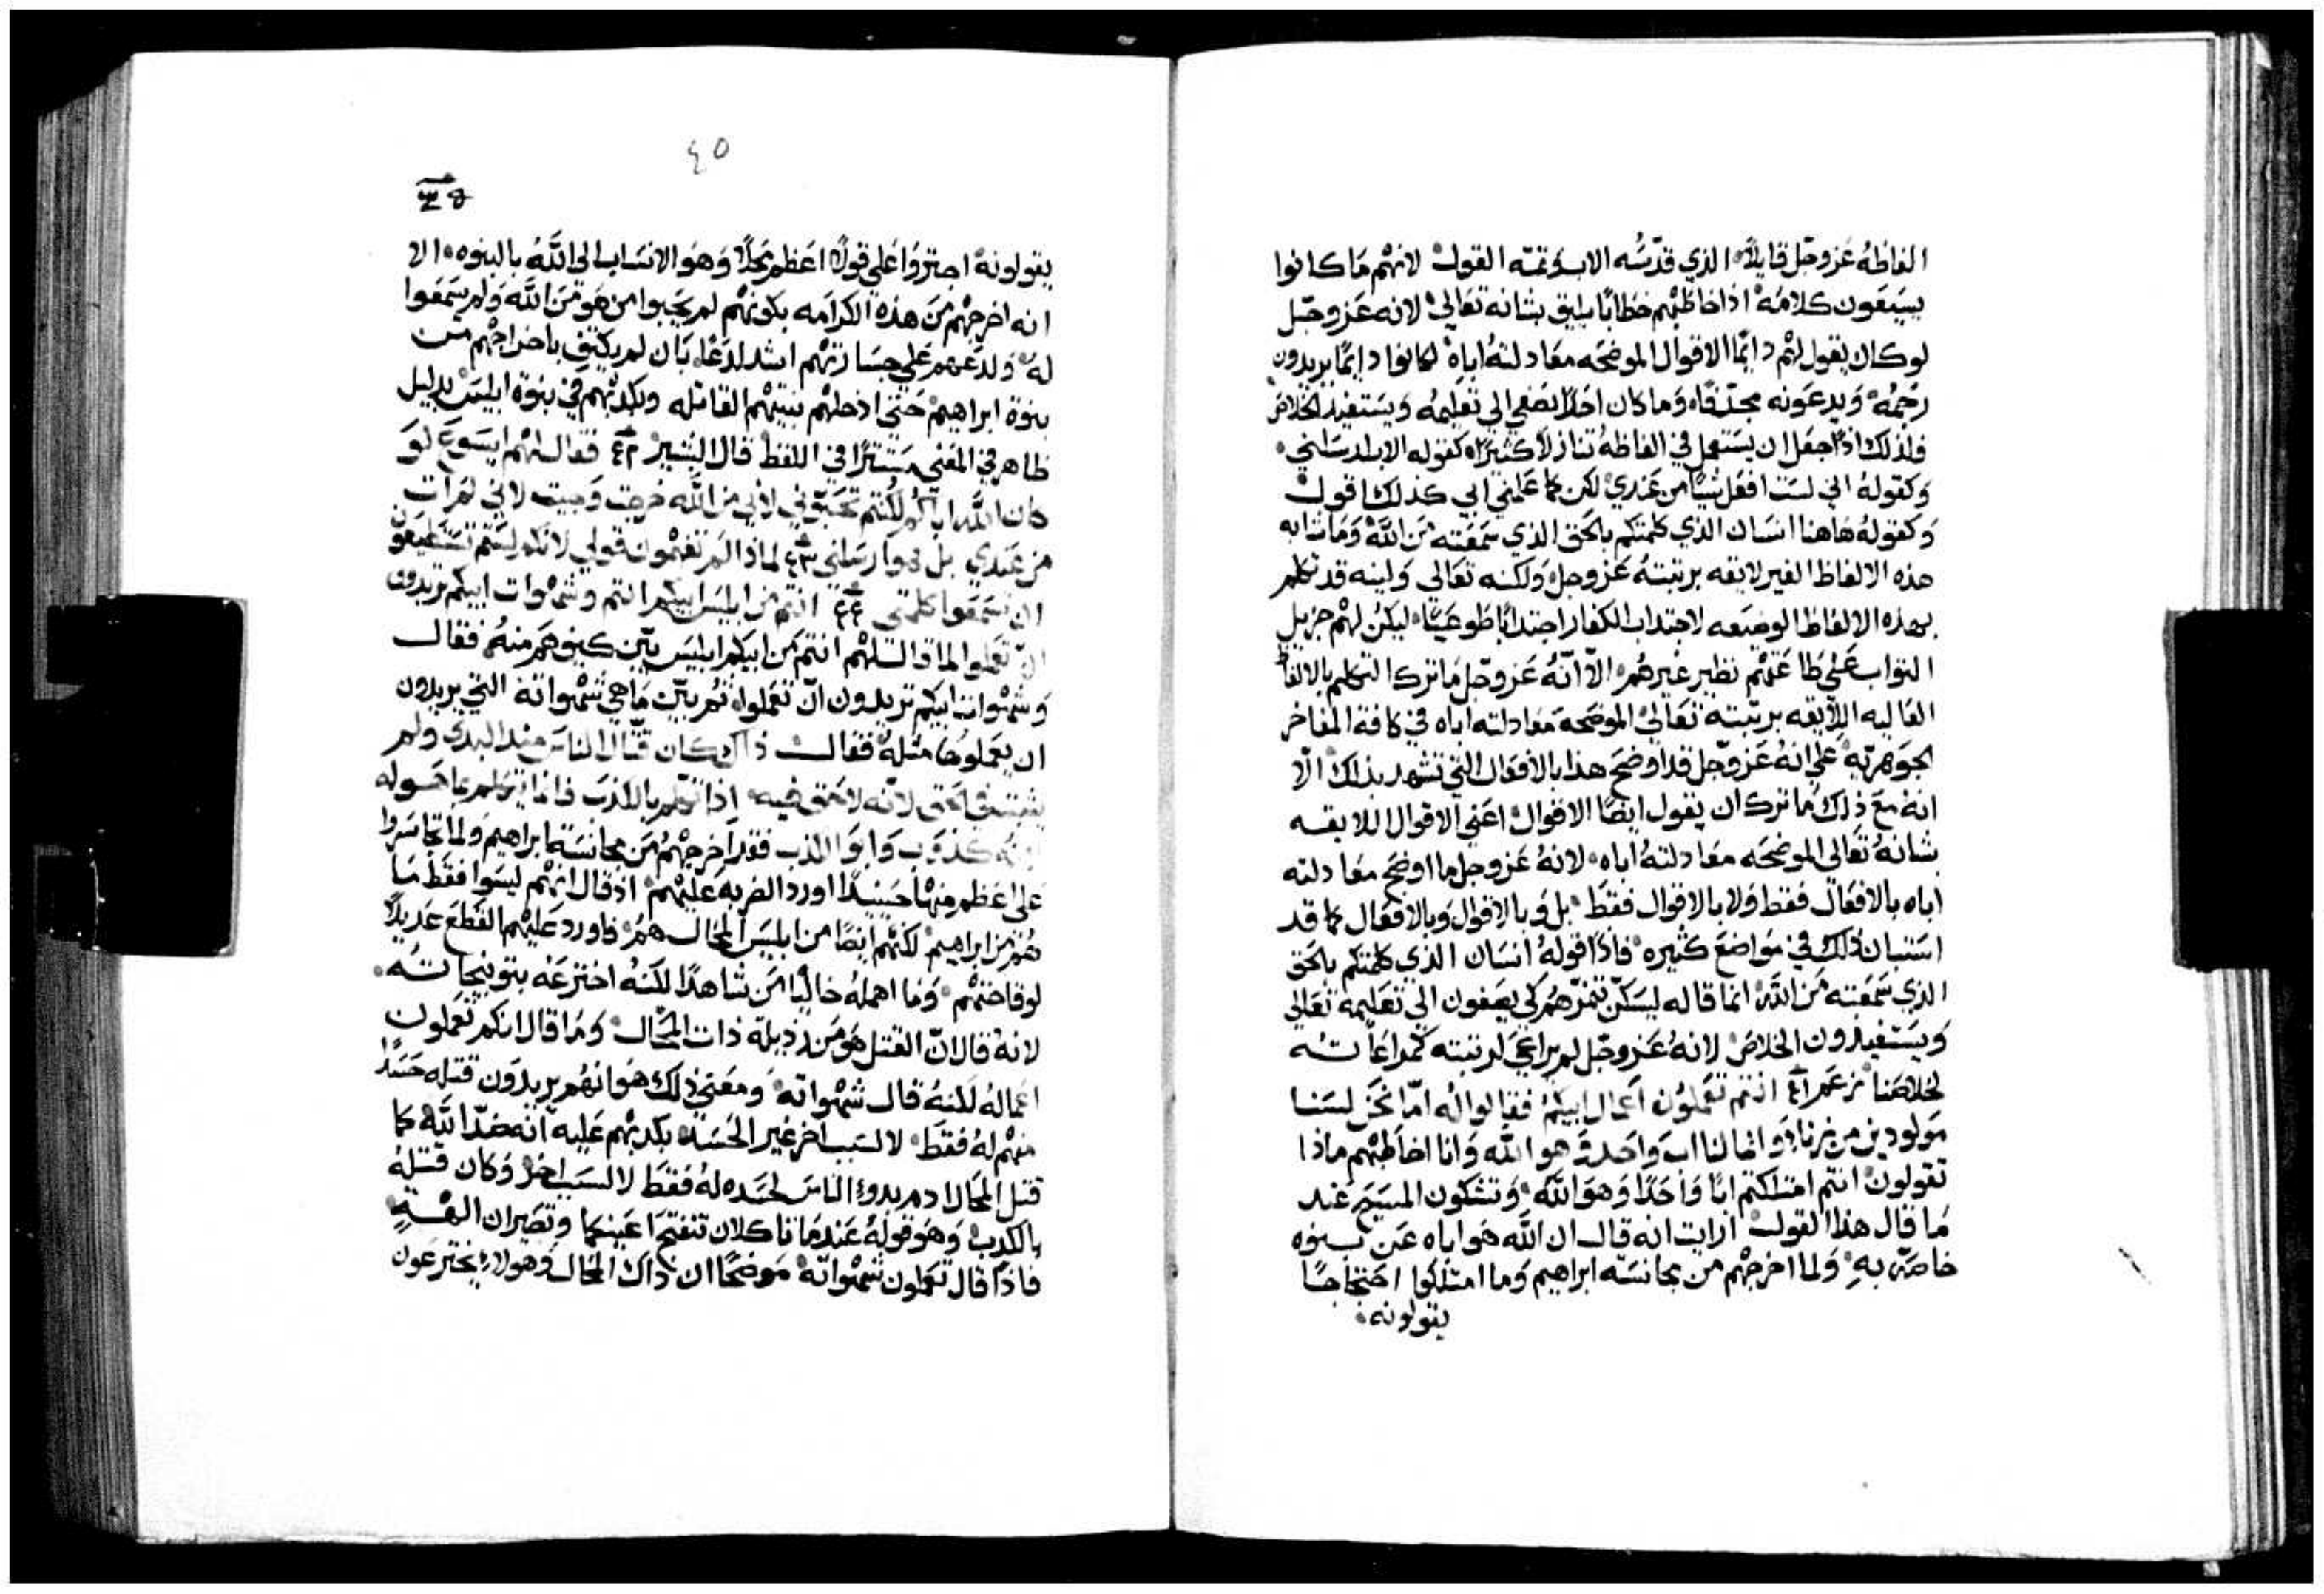 الفاظهُ عَزوجّل قايلاً الذي قدّسُه الاب وَتمته القولْ لانهُم مَا كانوا
يسمَعون كلامُهْ اذا خاطبْهم خطابًا يليق بشانه تعَالي لانه عَزوجّل
لوكان يقول لهُم دايمًا الاقوال الموضحَه معَادلتهُ اباهْ لكانوا دايمًا يريدون
رَجمُهْ وَيدعَونه مجدّفًا وَما كان احَدًا يصَغي الي تعَليمُه وَيستفيد الخلاصَ
فلذلك اذًا جعَل ان يستعمل في الفاظهُ تنازلاً كثيرًا كقوله الاب ارسَلني
وَكقولهُ اني لسَت افعَل شيًا من عَندي لكن كما عَلمني ابي كذلك اقولْ
وَكقولهُ هَاهنا انسَان الذي كلمتكم بالحَق الذي سَمعَته مَن اللَّه وَمَا شابه
هذه الالفاظ الغير لايقه برتبتهُ عَزوجل وَلكنه تعَالي وَلينه قد تكلم
بهذه الالفاظ الوضيعَه لاجتداب الكفار اجتدابًا طوعَيًا ليكن لهُم جزيل
الثواب عَلي طاعَتهُم نظير غيرهُم الاّ انّهُ عَزوجّل مَا ترك التكلم بالالفاظ
العَاليه اللايقه برتبته تعَالي الموضحَه معَادلته اباه في كافة المفاخر
الجوَهريّه عَلي انهُ عَزوجّل قد اوضحَ هذا بالافعَال التي تشهد بذلك الا
انهْ معَ ذلك مَا ترك ان يقول ايضًا الاقوال اعَني الاقوال اللايقـه
بشانهُ تعَالي الموضحَه معَادلتهُ اباه لانهُ عَزوجل ما اوضحَ معَادلته
اباه بالافعَال فقط وَلا بالاقوال فقط بل وَبالاقوال وَبالافعَال كما قد
استبان ذلك في موَاضعَ كثيره فاذًا قولهُ انسَان الذي كلمتكم بالحَق
الذي سمَعَته مَن اللَّه انما قاله ليسَكّن تنمّرَهُم كي يصَغون الي تعَليمه تعَالي
وَيستفيدون الخلاصَ لانهُ عَزوجّل لم يراعَي لرتبته كمراعَاتـهُ
لخلاصَنا انتم تعَملون اعَمال ابيكمْ فقالوا لهُ امّا نحَن لسَنـا
مَولودين من زناْ وَانما لنا اب وَاحَد وَهو اللَّه وَانا اخاطبْهم ماذا
تقولونْ انتم امتلكتم ابًا وَاحَدًا وَهوَ اللَّه وَتشكون المسَيحَ عَند
مَا قال هذا القولْ ارايت انه قال ان اللَّه هوَ اباه عَن بـنوه
خاصَه بهِ وَلما اخرجهُم من مجانسَة ابراهيم وَما امتلكوا احَتجاجًا
يقولونه
٤٥
يقولونهْ اجترَوَا عَلي قولاً اعَظم محَلاً وَهوَ الانتسَاب الي اللَّهُ بالبنوه الا
انه اخرجهُم مَن هذه الكرامَه بكونهُم لم يحَبوا من هوَ مَن اللَّه وَلم يسَمعَوا
لهْ وَلدعَهم عَلي جسَارتهُم اشد لدعًَا بَان لم يكتفِ باخراجهُم مـن
بنوة ابراهيمْ حَتي ادخلهُم بنيتهُم القاتله وبكدبهُم في بنوة ابليسَ بدليل
ظاهر في المعَني مَستترًا في اللفظ قال البشير ٤٢ فقال لهُم ايسَوع لوَ
كان اللَّه اباكم لكنتم تحَبوّني لاني من اللَّه خرجت وَجيت لاني لم ات
من عَندي بل هوَ ارسَلني ٤٣ لماذا لم تفهَمون قولي لانكم لستم تستطيعَون
ان تسَمعَوا كلمتي ٤٤ انتم من ابليسَ ابيكم انتم وشهوَات ابيكم تريدون
ان تعَملوا لما قال لهُم انتم مَن ابيكم ابليسَ بيّن كيف هَم منهُ فقال
وَشهوَات ابيكم تريدون ان تعَملوا ثم بيّن مَا هي شهوَاته التي يريدون
ان يعَملوها مثلهْ فقال ذاك كان قتّال الناسَ منذ البدي ولم
يثبت في الحَق لانّه لا حَق فيه اذا تكلم بالكدب فانما يتكلم بما هَو له
لانه كذوَب وَابوَ الكدب فقد اخرجهُم مَن مجانسَة ابراهيم وَلما تجاسَروا
عَلي اعَظم منها حَينيدًا اورد الضربه عَليهْم اذ قال انهُم ليسَوا فقط مَا
هُم من ابراهيمْ لكنهُم ايضًا من ابليسَ المحَال همْ فاورد عَليهْم القطعَ عَديلاً
لوقاحَتهُم وَما اهملهُ خاليًا مَن شاهدًا لكنهُ اخترعَهُ بتوبيخاتـهُ
لانهْ قال انّ القتل هوَ مَن رديلة ذات المحَالْ وَمَا قال انكم تعَملون
اعَمالهُ لكنهُ قال شهوَاتهْ وَمعَني ذلك هوَ انهُم يريدَون قتله حَسَدًا
منهُم لهُ فقطْ لا لسَبب اخر غير الحَسَدْ بكدبهُم عَليه انّه ضدّ اللَّه كما
قتل المحَال ادم بدوء الناسَ لحَسَده لهُ فقط لا لسَبب اخرْ وَكان قتلهُ
بالكدبْ وَهوَ قولهُ عَندمَا تاكلان تنفتحَ اعَينكما وَتصَيران الـهـةٍ
فاذًا قال تعَملون شهوَاتهْ موَضحًَا ان ذاك المحَال وَهولاء يخترعَون